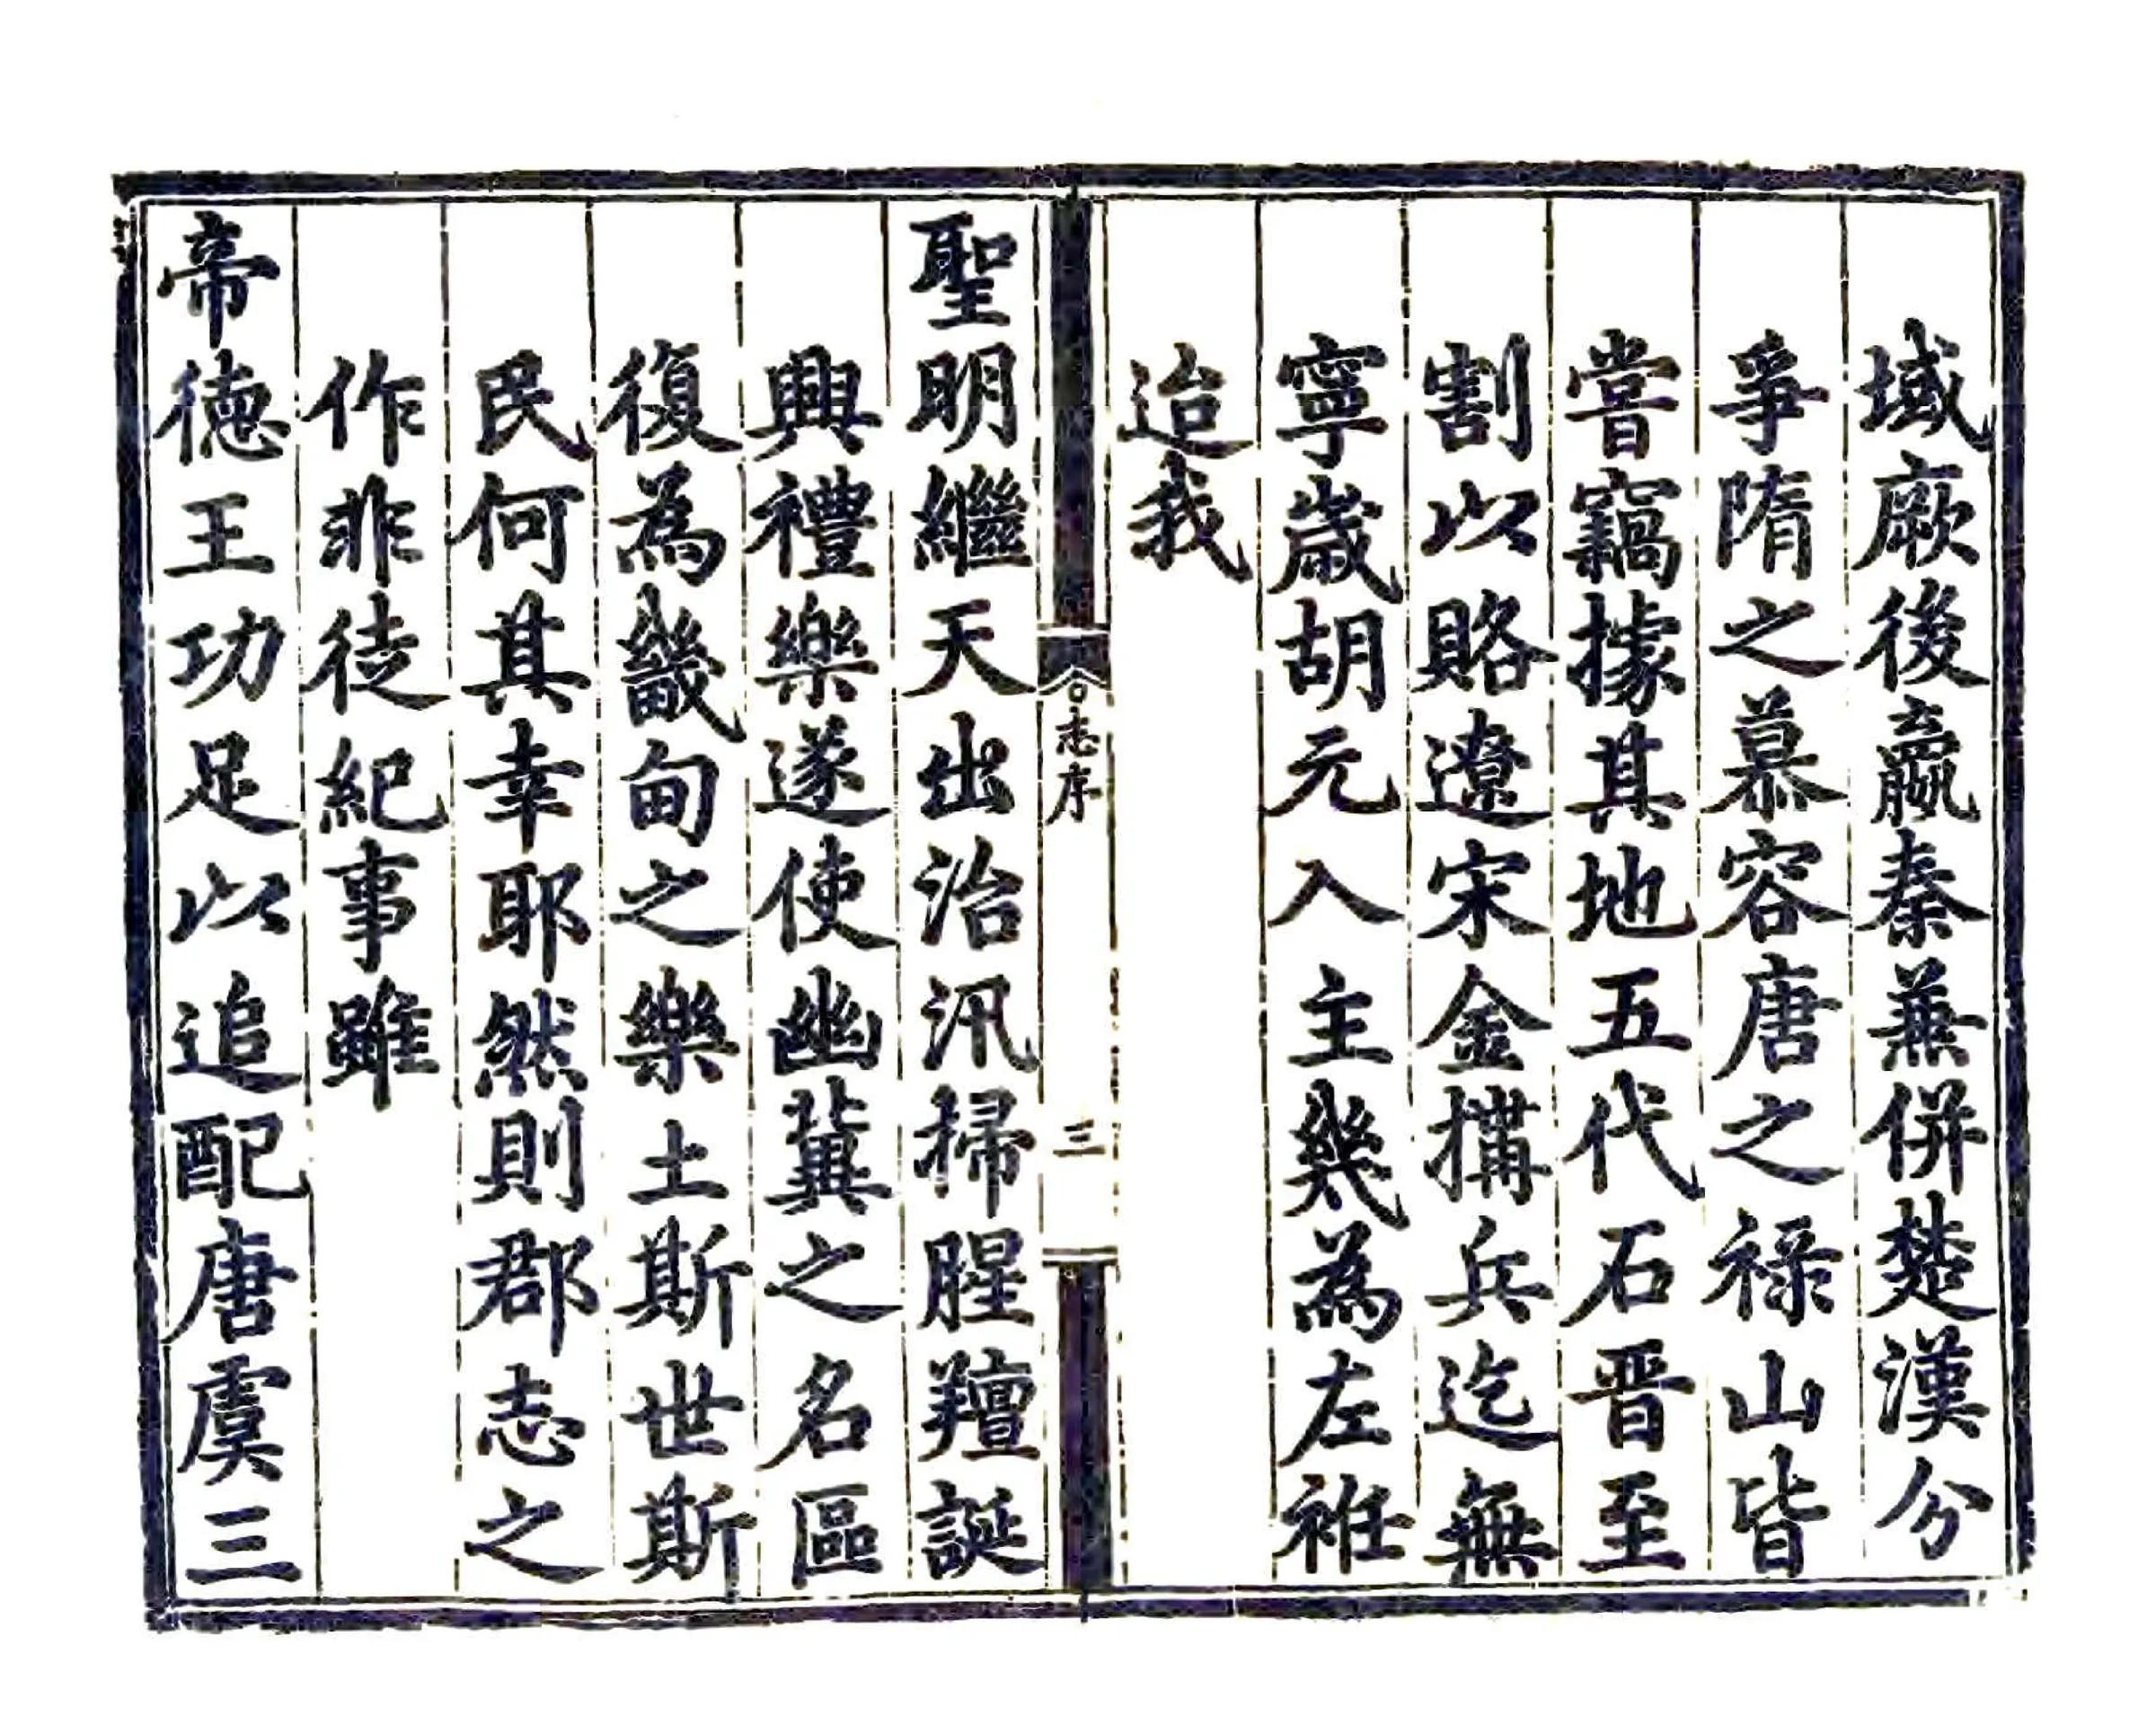 域厥後嬴秦蒹併楚漢分
爭隋之慕容唐之祿山皆
嘗竊據其地五代石晉至
割以賂遼宋金搆兵迄無
寧歲胡元入主幾為左袵
迨我
志序
三
聖明繼天出治汛掃腥羶誕
興禮樂遂使幽冀之名區
復為畿甸之樂土斯世斯
民何其幸耶然則郡志之
作非徒紀事雖
帝德王功足以追配唐虞三